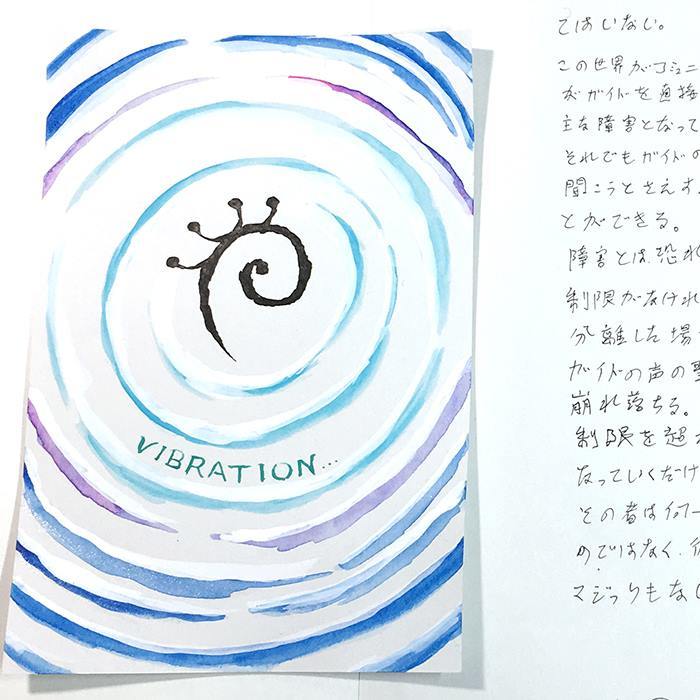 VIBRATION...
てはいない。
この世界がコミュニ
がガイドを直接
主な障害となって
それでもガイドの
聞こうとさえす
とができる。
障害とは、恐れ
制限がなけれ
分離した場
ガイドの声の
崩れ落ちる。
制限を超
なっていくだけ
その者は何一
のではなく、
マジックもな